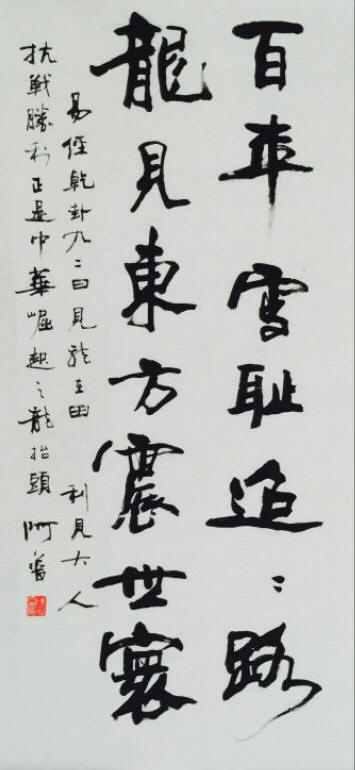 百年雪耻迢〻路
龍見東方震世寰
易經乾卦九二曰見龍在田 利見大人
抗戰勝利正是中華崛起之龍抬頭 阿